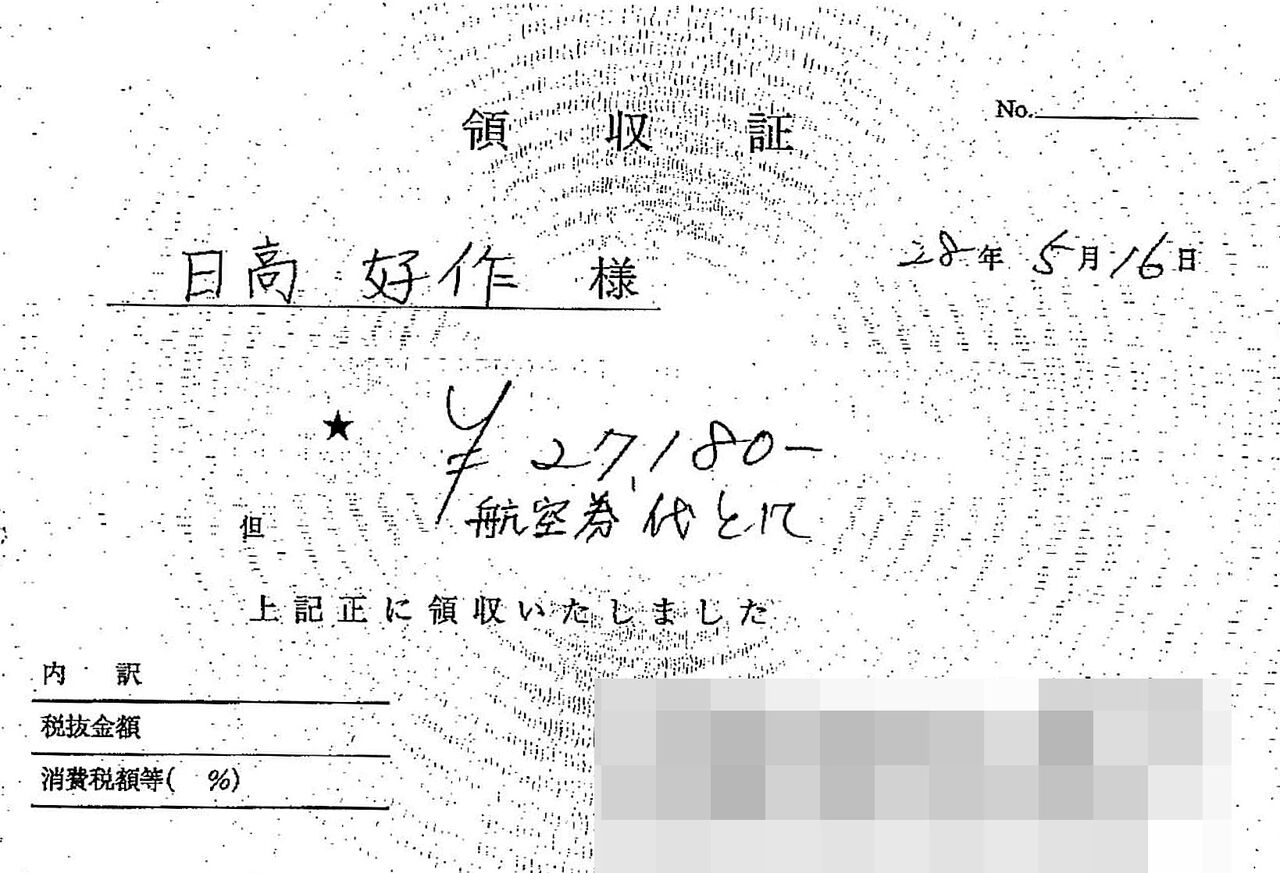 領 収 証
No.
日高 好作 様
28年 5月16日
★ ¥27,180-
但 航空券代として
上記正に領収いたしました
内 訳
税抜金額
消費税額等( %)